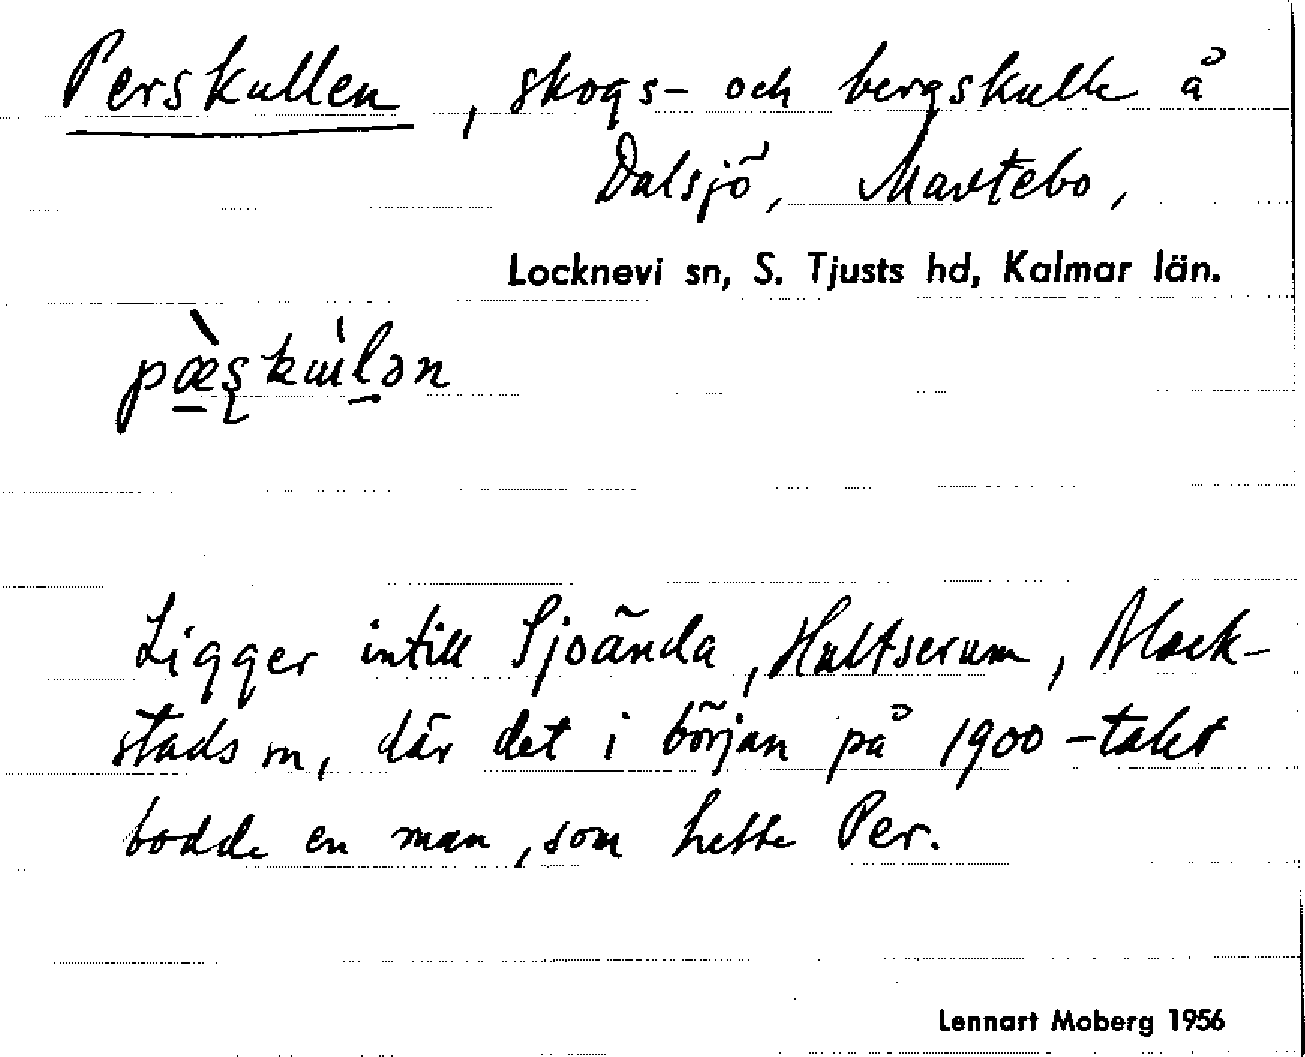 Perskullen, skogs- och bergskulle å
Dalsjö, Martebo,
Locknevi sn, S. Tjusts hd, Kalmar län.
pæ̀ʂkɯ́lən
Ligger intill Sjöända, Hultserum, Black-
stads sn, där det i början på 1900-talet
bodde en man, som hette Per.
Lennart Moberg 1956